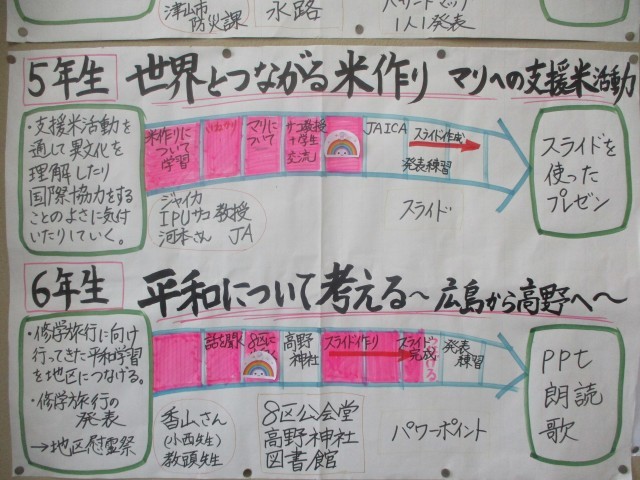 津山市
防火課
水路
1人1発表
5年生
世界とつながる米作り マリへの支援米活動
・支援米活動を
通して異文化を
理解したり
国際協力をする
ことのよさに気付
いたりしていく。
米作りに
ついて
学習
マリに
ついて
サコ教授
+学生
交流
JAICA
スライド作成
発表練習
ジャイカ
IPUサコ教授
河本さん JA
スライド
スライドを
使った
プレゼン
6年生
平和について考える~広島から高野へ~
・修学旅行に向け
行ってきた平和学習
を地区につなげる。
・修学旅行の
発表
→地区慰霊祭
話を聞く
8区に
高野
神社
スライド作り
スライド
完成
発表
練習
香山さん
(小西先生)
教頭先生
8区公会堂
高野神社
図書館
パワーポイント
ppt
朗読
歌